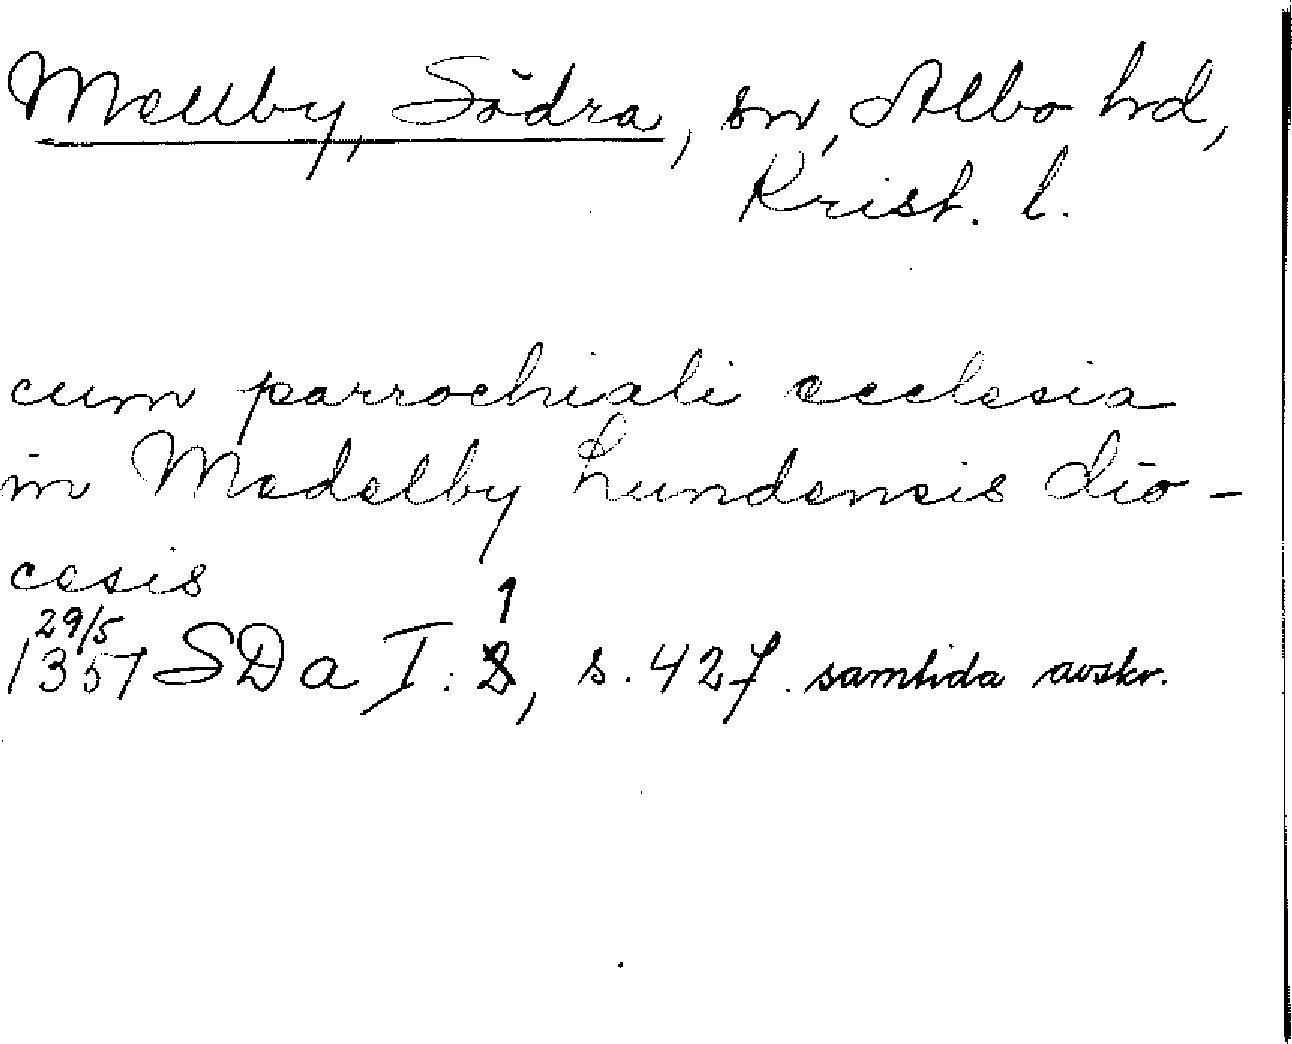 Mellby, Södra, sn, Albo hd,
Krist. l.
cum parrochiali ecclesia
in Medelby Lundensis dio-
cesis
29/5 1
1357 SDa I: 8, s. 427. samtida avskr.